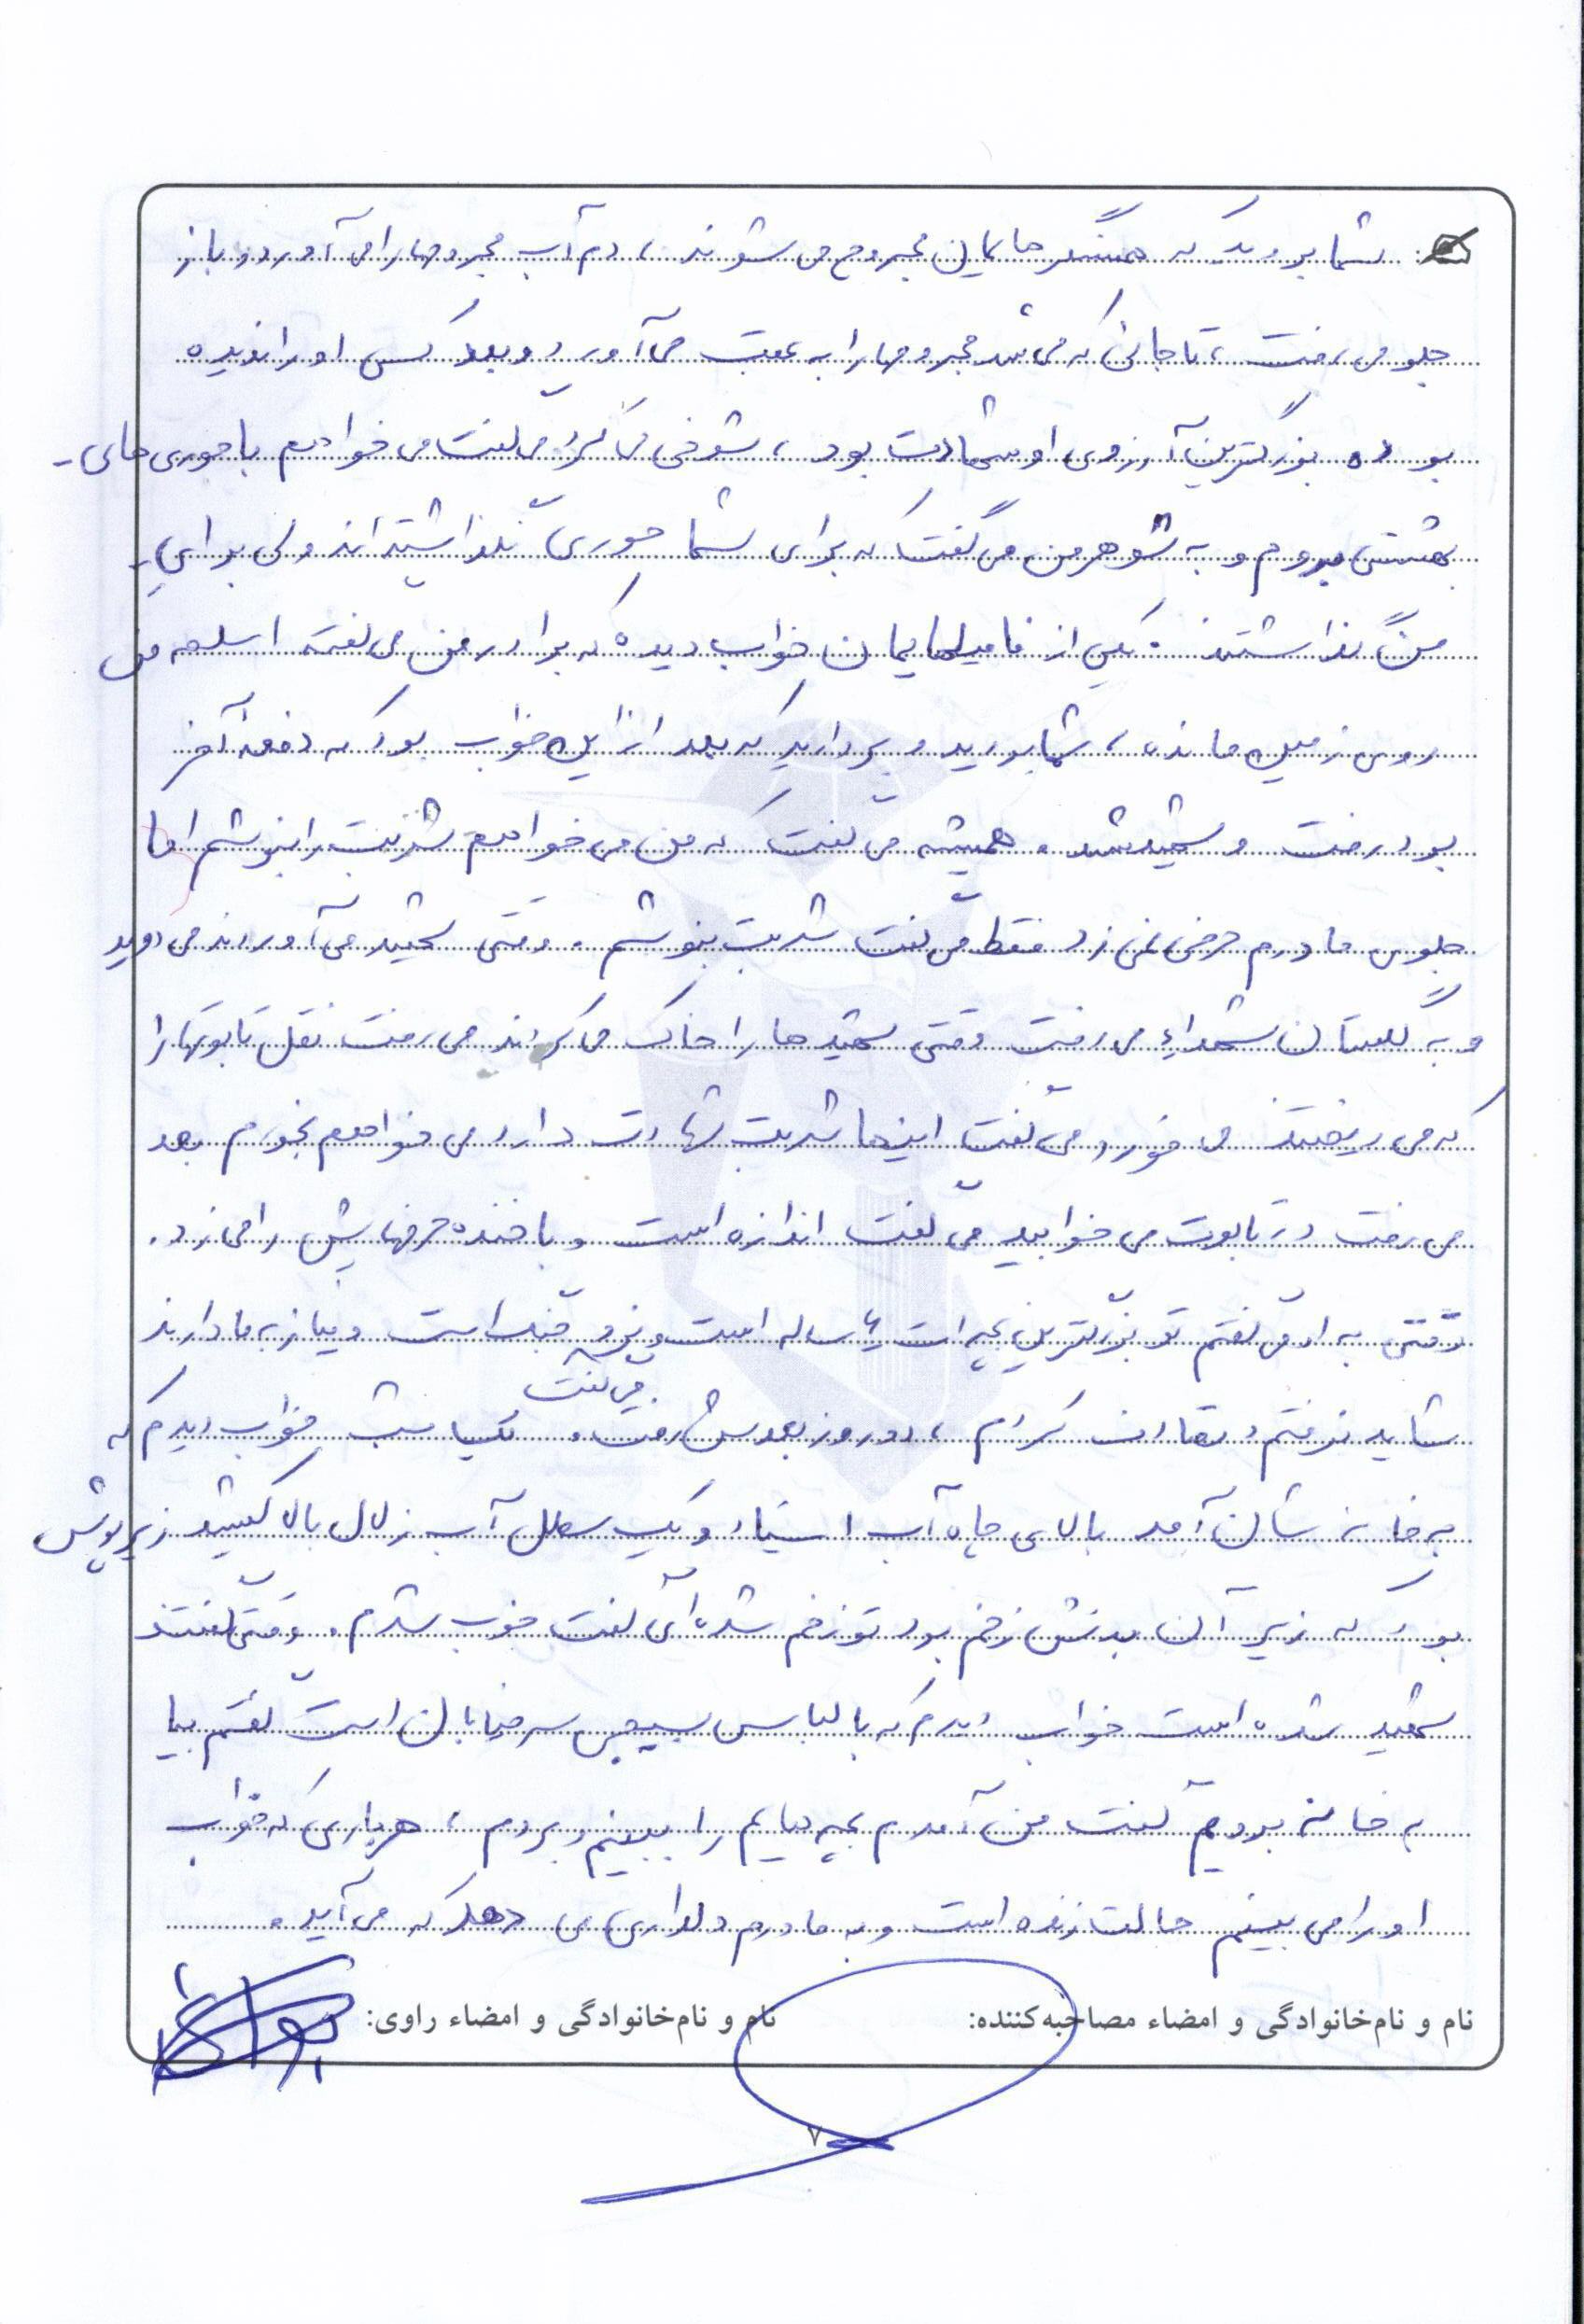 شما بروید که همسنگرهایمان مجروح می شوند، دم آب مجروحها را می آورد و باز
جلو می رفت، تا جائی که می شد مجروحها را به عقب می آورد و بعد کسی او را ندیده
بوده بزرگترین آرزوی او شهادت بود، شوخی می کرد می گفت می خواهم با حوری های
بهشتی بروم و به شوهر من می گفت که برای شما حوری نگذاشته اند ولی برای
من گذاشتند. یکی از فامیلهایمان خواب دیده که برادر من می گفته اسلحه من
روی زمین مانده، شما بروید و بردارید که بعد از این خواب بود که دفعه آخر
بود رفت و شهید شد. همیشه می گفت که من می خواهم شربت را بنوشم اما
جلوی مادرم حرفی نمی زد فقط می گفت شربت بنوشم. وقتی شهید می آوردند می دوید
و به گلستان شهداء می رفت وقتی شهیدها را خاک می کردند می رفت نقل تابوتها را
که می ریختند می خورد و می گفت اینها شربت شهادت دارد می خواهم بخورم بعد
می رفت در تابوت می خوابید می گفت اندازه است و با خنده حرفهایش را می زد.
وقتی به او می گفتم تو بزرگترین بچه ات ۶ ساله است و نرو می گفت جنگ است و نیاز به ما دارند
شاید نرفتم و تصادف کردم، دو روز بعدش رفت. یک شب خواب دیدم که
به خانه شان آمد بالای چاه آب ایستاد و یک سطل آب زلال بالا کشید زیرپوش
بود که زیر آن بدنش زخم بود تو زخم شده ای گفت خوب شدم. وقتی گفتند
شهید شده است خواب دیدم که با لباس بسیجی سر خیابان است گفتم بیا
به خانه برویم گفت من آمدم بچه هایم را ببینم و بروم، هر باری که خواب
او را می بینم حالت زنده است و به مادرم دلداری می دهد که می آید.
نام و نام‌خانوادگی و امضاء مصاحبه‌کننده: نام و نام‌خانوادگی و امضاء راوی:
۷